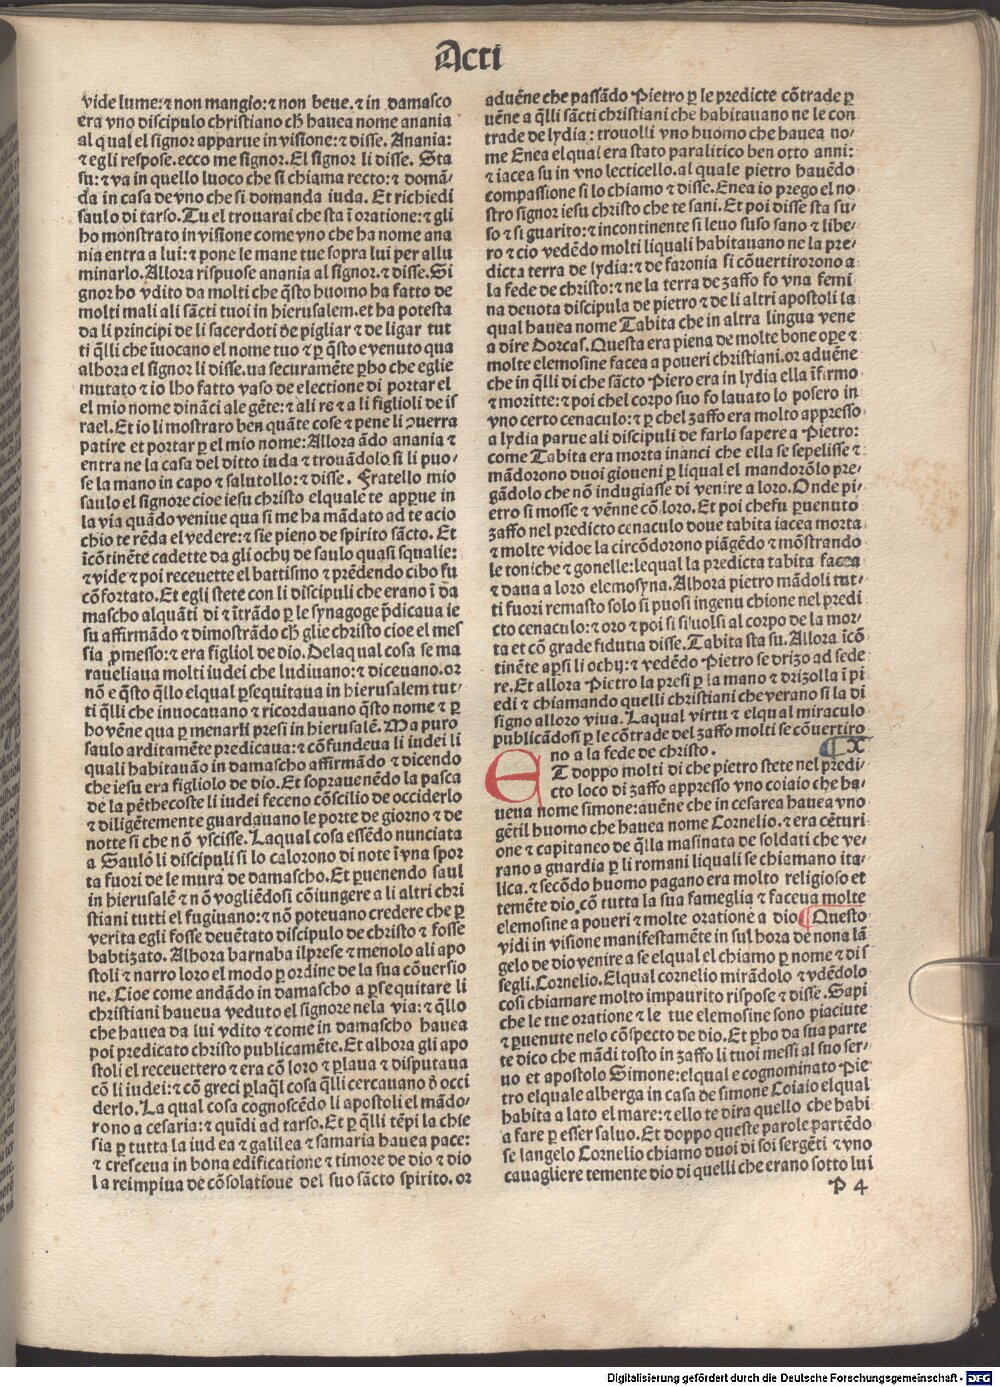 Acti
vide lume:⁊ non mangio:⁊ non beue.⁊ in damasco
era vno discipulo christiano ch̄ hauea nome anania
al qual el signor apparue in visione:⁊ disse. Anania:
⁊ egli respose.ecco me signor.El signor li disse. Sta
su:⁊ va in quello luoco che si chiama recto:⁊ domā/
da in casa de vno che si domanda iuda. Et richiedi
saulo di tarso.Tu el trouarai che sta ī oratione:⁊ gli
ho monstrato in visione come vno che ha nome ana
nia entra a lui:⁊ pone le mane tue sopra lui per allu
minarlo.Allora rispuose anania al signor.⁊ disse.Si
gnor ho vdito da molti che q̄sto huomo ha fatto de
molti mali ali sācti tuoi in hierusalem.et ha potesta
da li principi de li sacerdoti de pigliar ⁊ de ligar tut
ti q̄lli che īuocano el nome tuo ⁊ ꝑ q̄sto e venuto qua
alhora el signor li disse.ua securamēte ꝑho che eglie
mutato ⁊ io lho fatto vaso de electione di portar el
el mio nome dināci ale gēte:⁊ ali re ⁊ a li figlioli de is
rael.Et io li mostraro ben quāte cose ⁊ pene li ꝯuerra
patire et portar ꝑ el mio nome:Allora ādo anania ⁊
entra ne la casa del ditto iuda ⁊ trouādolo si li puo/
se la mano in capo ⁊ salutollo:⁊ disse. Fratello mio
saulo el signore cioe iesu christo elquale te apꝑue in
la via quādo veniue qua si me ha mādato ad te acio
chio te rēda el vedere:⁊ sie pieno de spirito sācto. Et
īcōtinēte cadette da gli ochy de saulo quasi squalie:
⁊ vide ⁊ poi receuette el battismo ⁊ prēdendo cibo fu
cōfortato.Et egli stete con li discipuli che erano ī da
mascho alquāti di ⁊ ītrādo ꝑ le synagoge p̄dicaua ie
su affirmādo ⁊ dimostrādo ch̄ glie christo cioe el mes
sia ꝓmesso:⁊ era figliol de dio.Delaqual cosa se ma
raueliaua molti iudei che ludiuano:⁊ diceuano.or
nō e q̄sto q̄llo elqual ꝑsequitaua in hierusalem tut/
ti q̄lli che inuocauano ⁊ ricordauano q̄sto nome ⁊ ꝑ
ho vēne qua ꝑ menarli presi in hierusalē. Ma puro
saulo arditamēte predicaua:⁊ cōfundeua li iudei li
quali habitauāo in damascho affirmādo ⁊ dicendo
che iesu era figliolo de dio.Et soprauenēdo la pasca
de la pēthecoste li iudei feceno cōscilio de occiderlo
⁊ diligētemente guardauano le porte de giorno ⁊ de
notte si che nō vscisse. Laqual cosa essēdo nunciata
a Saulo li discipuli si lo calorono di note īvna spor
ta fuori de le mura de damascho.Et ꝑuenendo saul
in hierusalē ⁊ nō vogliēdosi cōiungere a li altri chri
stiani tutti el fugiuano:⁊ nō poteuano credere che ꝑ
verita egli fosse deuētato discipulo de christo ⁊ fosse
babtizato. Alhora barnaba ilprese ⁊ menolo ali apo
stoli ⁊ narro loro el modo ꝑ ordine de la sua cōuersio
ne. Cioe come andādo in damascho a ꝑsequitare li
christiani haueua veduto el signore nela via:⁊ q̄llo
che hauea da lui vdito ⁊ come in damascho hauea
poi predicato christo publicamēte.Et alhora gli apo
stoli el receuettero ⁊ era cō loro ⁊ ꝑlaua ⁊ disputaua
cō li iudei:⁊ cō greci ꝑlaq̄l cosa q̄lli cercauano ď occi
derlo. La qual cosa cognoscēdo li apostoli el mādo/
rono a cesaria:⁊ quīdi ad tarso.Et ꝑ q̄lli tēpi la chie
sia ꝑ tutta la iudea ⁊ galilea ⁊ samaria hauea pace:
⁊ cresceua in bona edificatione ⁊ timore de dio ⁊ dio
la reimpiua de cōsolatione del suo sācto spirito.or
aduēne che passādo Pietro ꝑ le predicte cōtrade ꝑ
uēne a q̄lli sācti christiani che habitauano ne le con
trade de lydia: trouolli vno huomo che hauea no/
me Enea elqual era stato paralitico ben otto anni:
⁊ iacea su in vno lecticello.al quale pietro hauēdo
compassione si lo chiamo ⁊ disse.Enea io prego el no
stro signor iesu christo che te sani. Et poi disse sta su/
so ⁊ si guarito:⁊ incontinente si leuo suso sano ⁊ libe/
ro ⁊ cio vedēdo molti liquali habitauano ne la pre/
dicta terra de lydia:⁊ de saronia si cōuertirorono a
la fede de christo:⁊ ne la terra de zaffo fo vna femi
na deuota discipula de pietro ⁊ de li altri apostoli la
qual hauea nome Tabita che in altra lingua vene
a dire Dorcas.Questa era piena de molte bone oꝑe ⁊
molte elemosine facea a poueri christiani.or aduēne
che in q̄lli di che sācto Piero era in lydia ella īfermo
⁊ moritte:⁊ poi chel corpo suo fo lauato lo posero in
vno certo cenaculo:⁊ ꝑ chel zaffo era molto appresso
a lydia parue ali discipuli de farlo sapere a Pietro:
come Tabita era morta inanci che ella se sepelisse ⁊
mādorono duoi gioueni ꝑ liqual el mandorōlo pre/
gādolo che nō indugiasse di venire a loro.Onde pi/
etro si mosse ⁊ vēnne cō loro. Et poi chefu ꝑuenuto
zaffo nel predicto cenaculo doue tabita iacea morta
⁊ molte vidoe la circōdorono piāgēdo ⁊ mōstrando
le toniche ⁊ gonelle:lequal la predicta tabita facea
⁊ daua a loro elemosyna.Alhora pietro mādoli tut/
ti fuori remasto solo si puosi ingenu chione nel predi
cto cenaculo:⁊ oro ⁊ poi si si uolsi al corpo de la mor/
ta et cō grade fidutia disse.Tabita sta su. Allora īcō
tinēte aꝑsi li ochy:⁊ vedēdo Pietro se drizo ad sede
re.Et allora Pietro la presi ꝑ la mano ⁊ drizolla ī pi
edi ⁊ chiamando quelli christiani che verano si la di
signo alloro viua. Laqual virtu ⁊ elqual miraculo
publicādosi ꝑ le cōtrade del zaffo molti se cōuertiro
no a la fede de christo.
X
ET doppo molti di che pietro stete nel predi/
cto loco di zaffo appresso vno coiaio che ha/
ueua nome simone:auēne che in cesarea hauea vno
gētil huomo che hauea nome Cornelio.⁊ era cēturi
one ⁊ capitaneo de q̄lla masinata de soldati che ve/
rano a guardia ꝑ li romani liquali se chiamano ita/
lica.⁊ secōdo huomo pagano era molto religioso et
temēte dio.cō tutta la sua fameglia ⁊ faceua molte
elemosine a poueri ⁊ molte oratione a dio Questo
vidi in visione manifestamēte in sul hora de nona lā
gelo de dio venire a se elqual el chiamo ꝑ nome ⁊ dis
segli.Cornelio.Elqual cornelio mirādolo ⁊ vdēdolo
cosi chiamare molto impaurito rispose ⁊ disse.Sapi
che le tue oratione ⁊ le tue elemosine sono piaciute
⁊ ꝑuenute nelo cōspecto de dio.Et ꝑho da sua parte
te dico che mādi tosto in zaffo li tuoi messi al suo ser/
uo et apostolo Simone:elqual e cognominato Pie
tro elquale alberga in casa de simone Coiaio elqual
habita a lato el mare:⁊ ello te dira quello che habi
a fare ꝑ esser saluo.Et doppo queste parole partēdo
se langelo Cornelio chiamo duoi di soi sergēti ⁊ vno
cauagliere temente dio di quelli che erano sotto lui
P 4
Digitalisierung gefördert durch die Deutsche Forschungsgemeinschaft - DFG